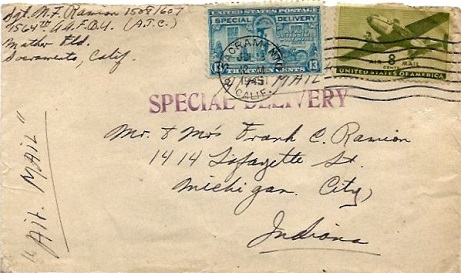 Sgt. W. F. Ramion
1564th A.A.F.B.U. (A.T.C.)
Mather Fld.
Sacramento, Calif.
UNITED STATES POSTAGE
SPECIAL DELIVERY
13 THIRTEEN CENTS 13
SACRAMENTO
1945
CALIF.
8
CENTS
AIR MAIL
UNITED STATES OF AMERICA
AIR MAIL
SPECIAL DELIVERY
Mr. & Mrs Frank C. Ramion
1414 Lafayette St.
Michigan City,
Indiana
"Air. MAIL"